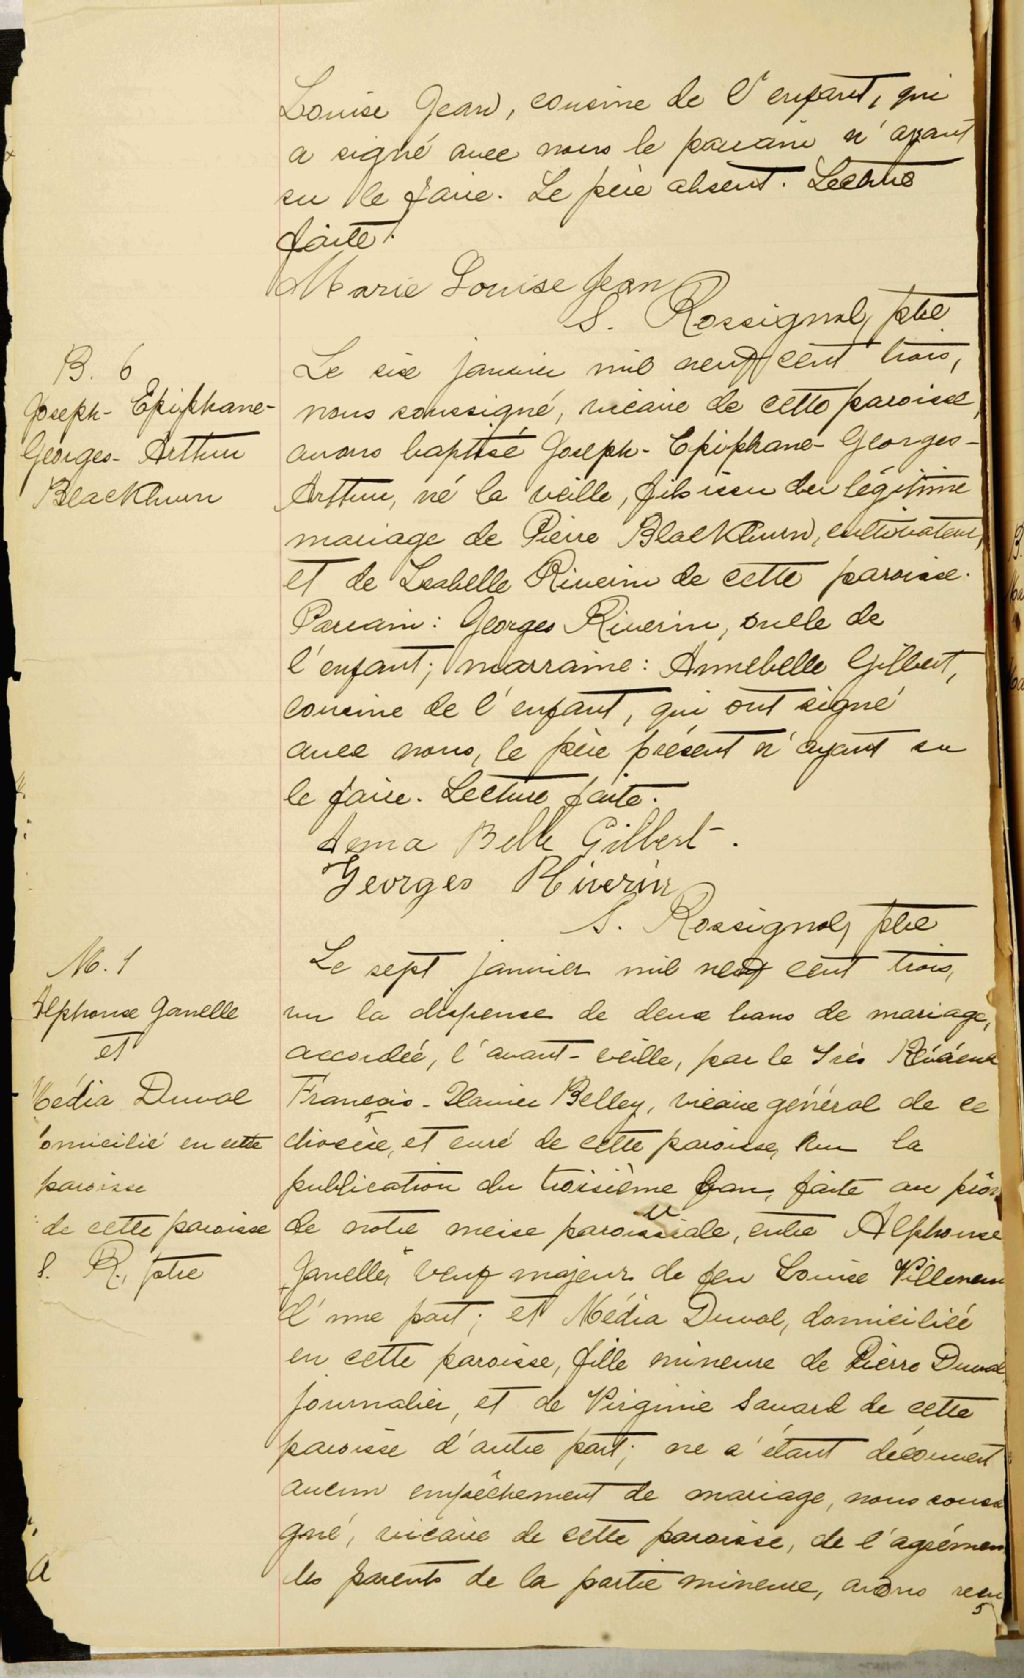 Louise Jean, cousine de l'enfant, qui
a signé avec nous le parrain n'ayant
su le faire. Le père absent. Lecture
faite.
Marie Louise Jean
S. Rossignol, ptre
B. 6
Joseph-Epiphane-
Georges-Arthur
Blackburn
Le six janvier mil neuf cent trois,
nous soussigné, vicaire de cette paroisse,
avons baptisé Joseph-Epiphane-Georges-
Arthur, né la veille, fils issu du légitime
mariage de Pierre Blackburn, cultivateur,
et de Isabelle Riverin de cette paroisse.
Parrain: Georges Riverin, oncle de
l'enfant; marraine: Annebelle Gilbert,
cousine de l'enfant, qui ont signé
avec nous, le père présent n'ayant su
le faire. Lecture faite.
Anna Belle Gilbert.
Georges Riverin
S. Rossignol, ptre
M. 1
Alphonse Janelle
et
Média Duval
domicilié en cette
paroisse
de cette paroisse
S. R., ptre
Le sept janvier mil neuf cent trois,
vu la dispense de deux bans de mariage,
accordée, l'avant-veille, par le Très Révérend
François-Xavier Belley, vicaire général de ce
diocèse, et curé de cette paroisse, vu la
publication du troisième ban, faite au prône
de notre messe paroissiale, entre Alphonse
Janelle, veuf majeur de feu Louise Villeneuve
d'une part; et Média Duval, domiciliée
en cette paroisse, fille mineure de Pierre Duval
journalier, et de Virginie Savard de cette
paroisse d'autre part; ne s'étant découvert
aucun empêchement de mariage, nous soussi
gné, vicaire de cette paroisse, de l'agrément
des parents de la partie mineure, avons reçu
5